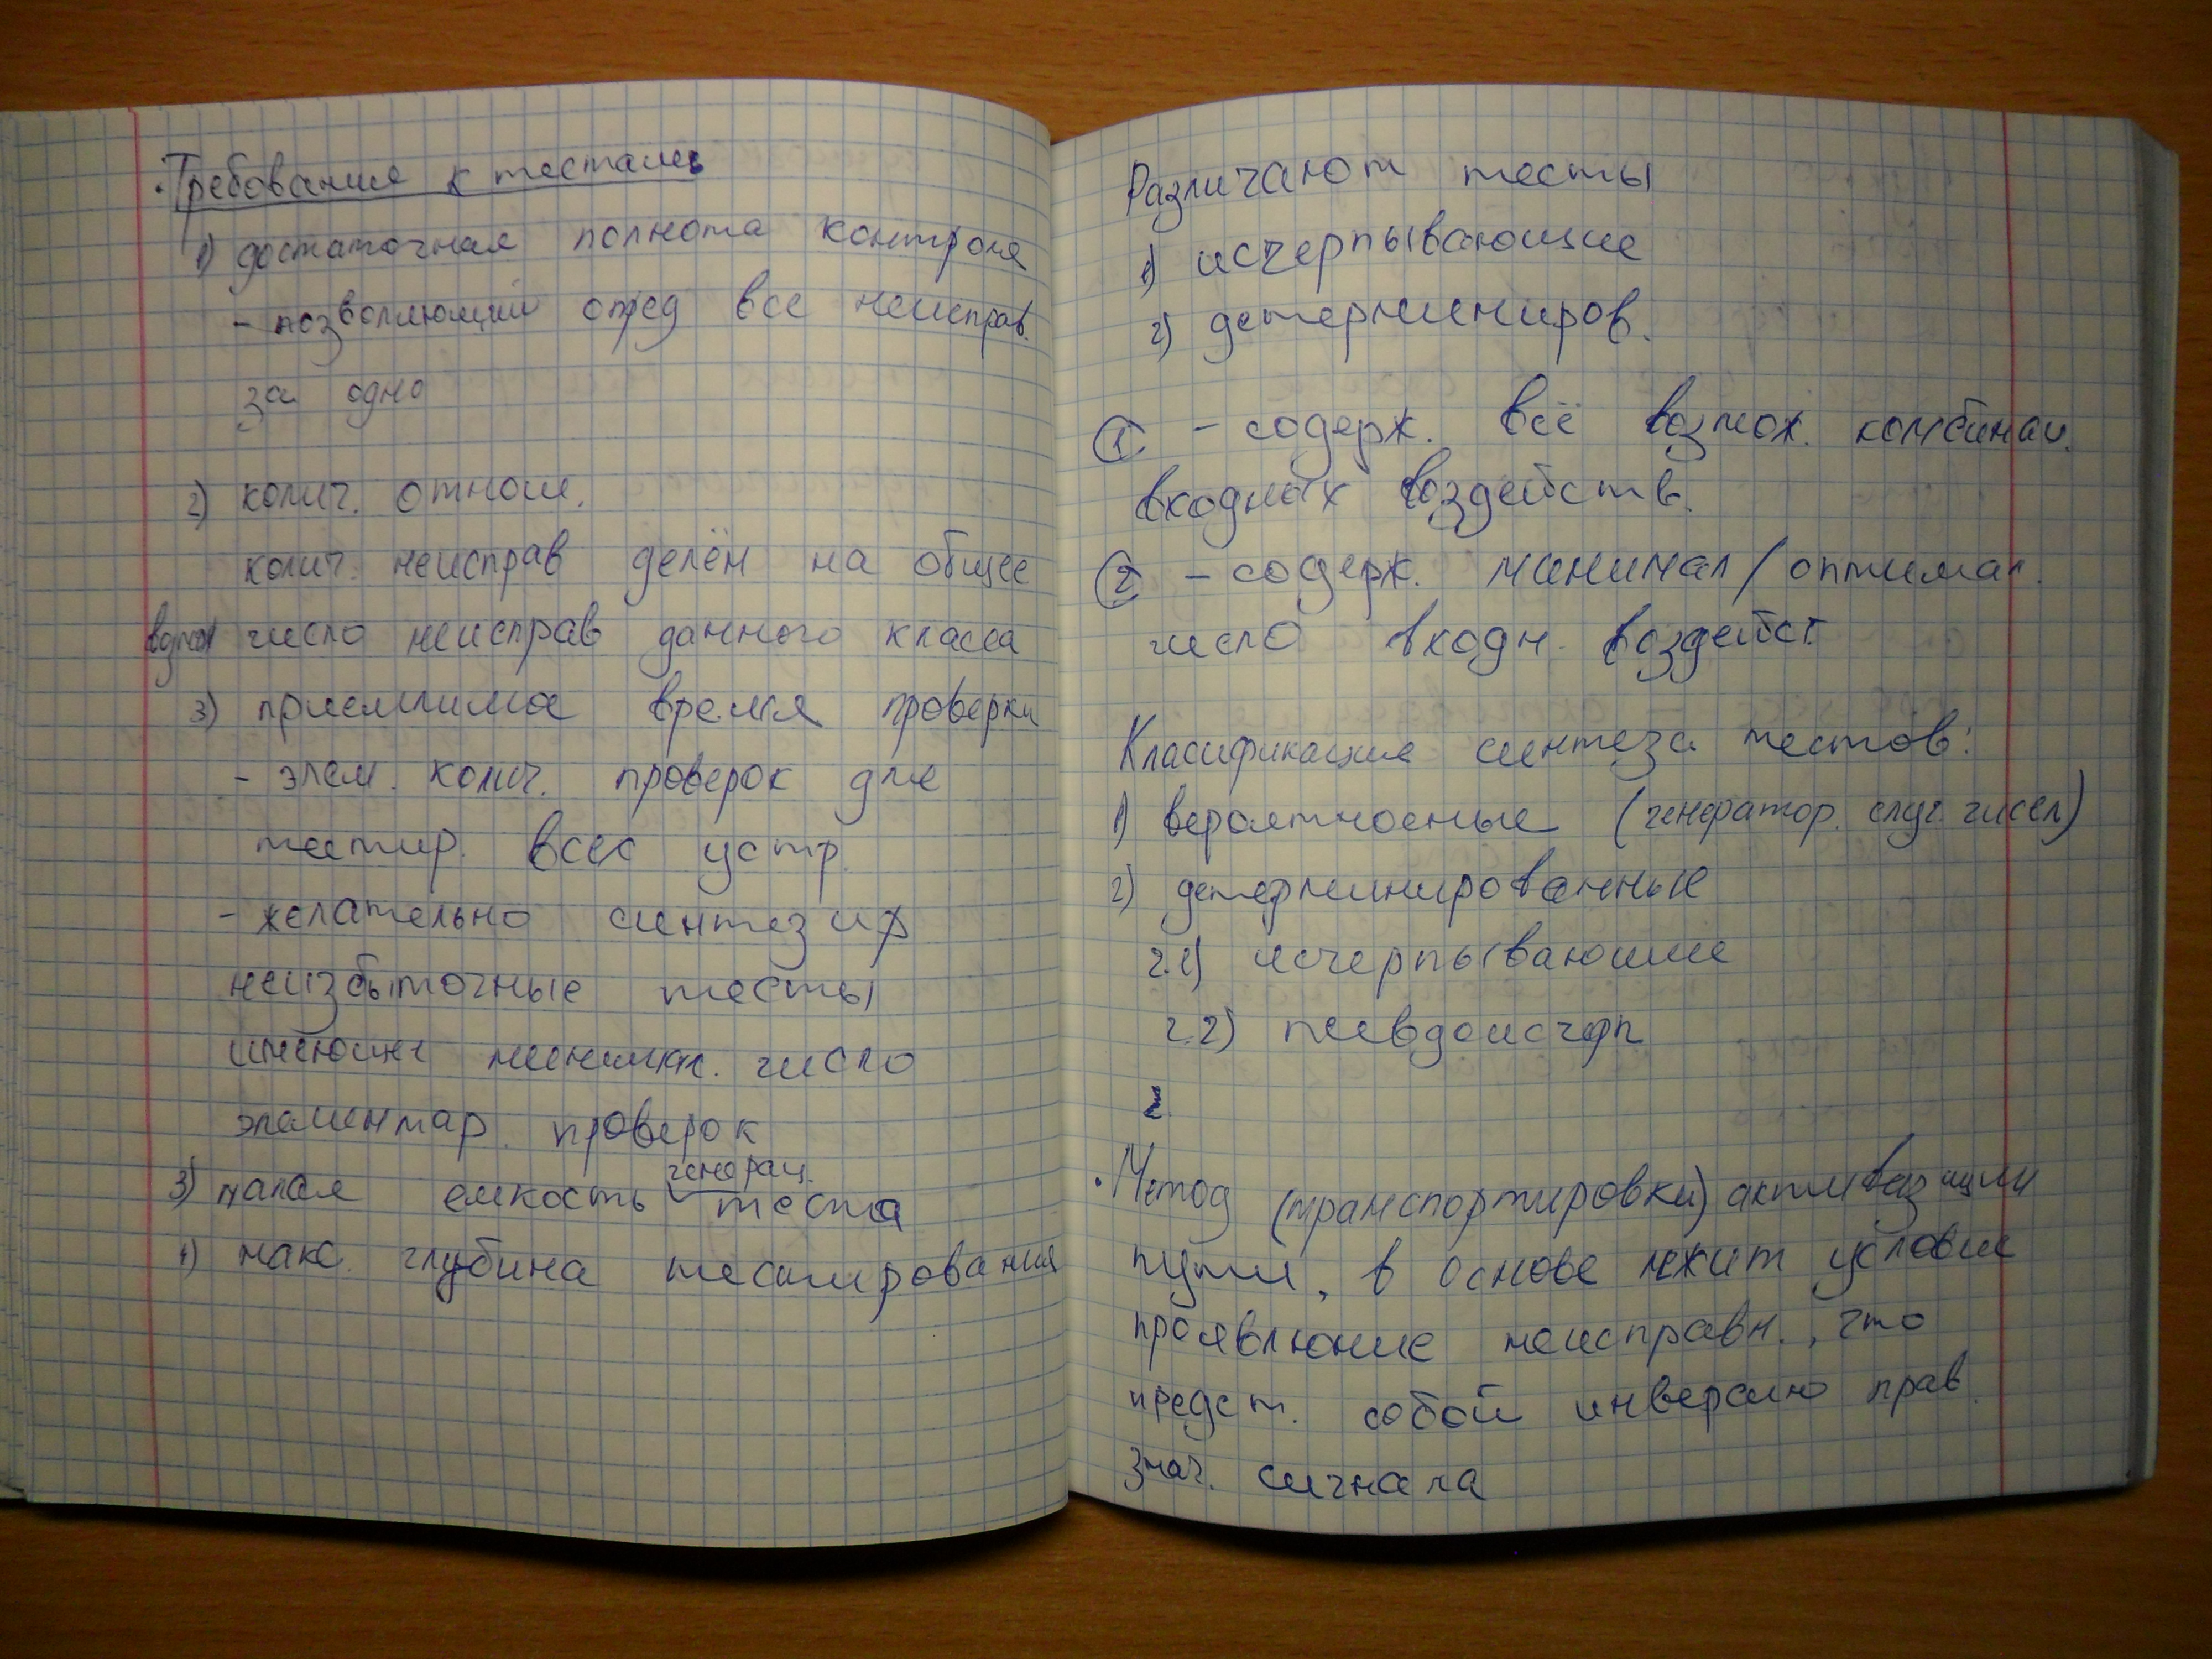 · Требования к тестам
1) достаточная полнота контроля
- позволяющий опред все неисправ.
за одно
2) колич. отнош.
колич. неисправ делён на общее
возмож число неисправ данного класса
3) приемлимое время проверки
- элем. колич. проверок для
тестир. всех устр.
- желательно синтезир
неизбыточные тесты
имеющие минимал. число
элементар. проверок
генерац.
3) малая емкость теста
4) макс. глубина тестирования
Различают тесты
1) исчерпывающие
2) детерминиров.
① - содерж. всё возмож. комбинац.
входных воздейств.
② - содерж. минимал/оптимал.
число входн. воздейст
Класификация синтеза тестов:
1) вероятносные (генератор. случ. чисел)
2) детерминированные
2.1) исчерпывающие
2.2) псевдоисчерп
· Метод (транспортировки) активизации
пути, в основе лежит условие
проявление неисправн., что
предст. собой инверсию прав.
знач. сигнала